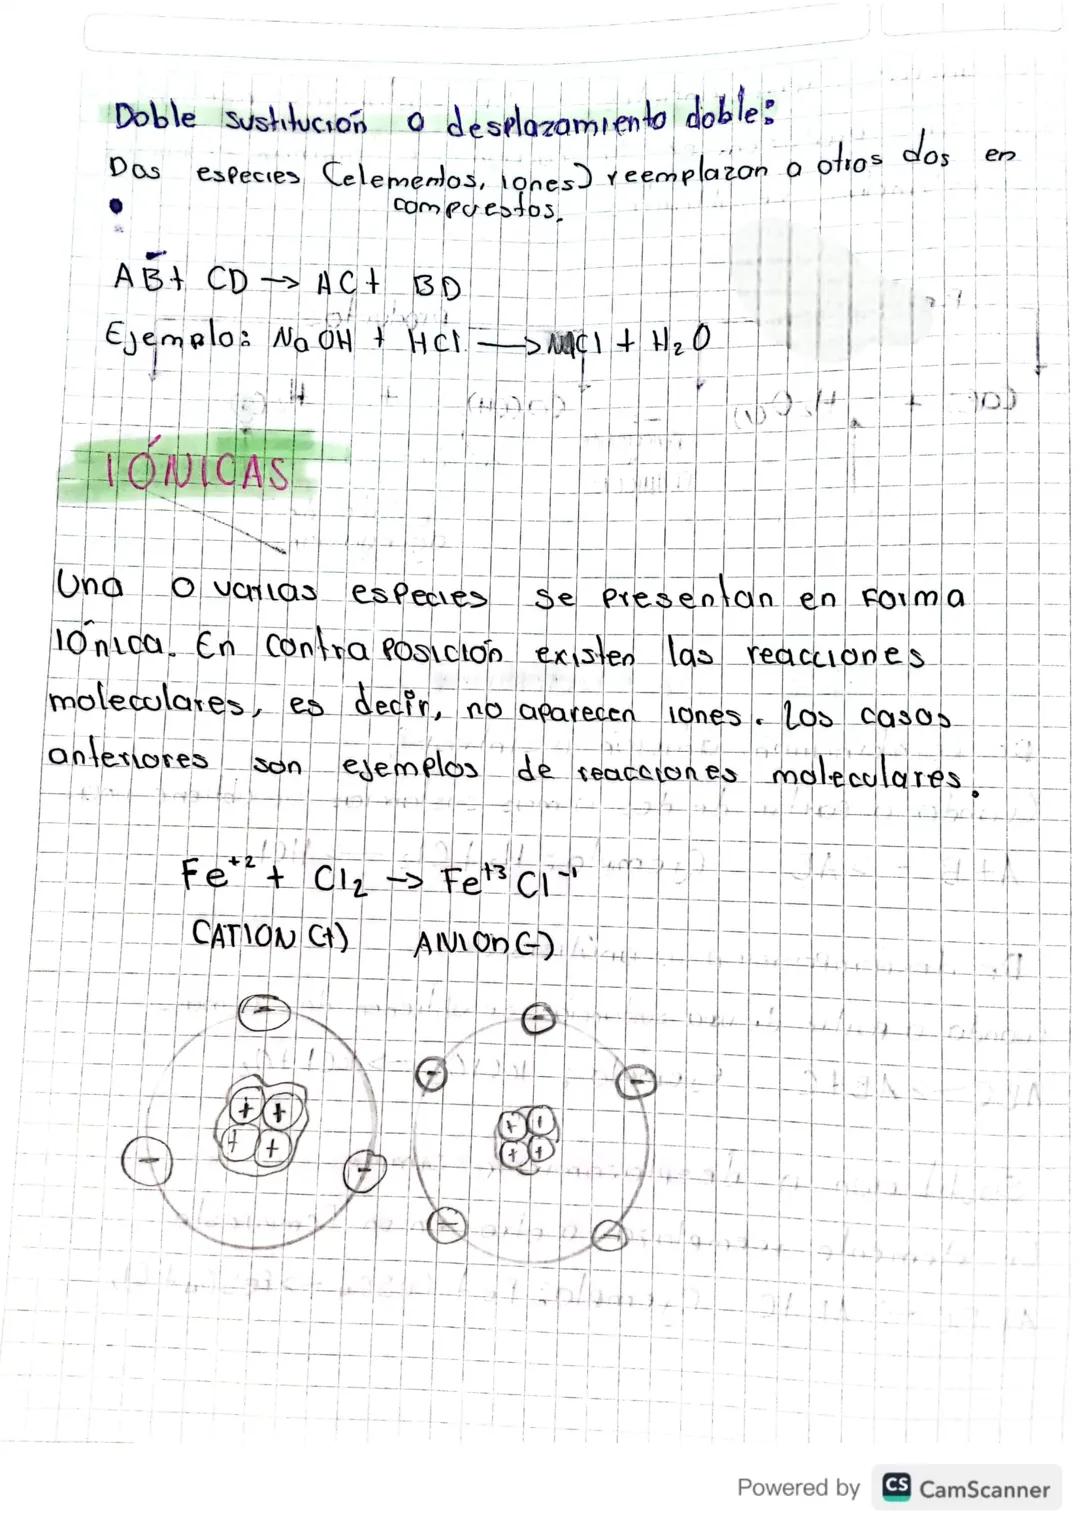 Doble sustitución o desplazamiento doble:
Dos especies (elementos, iones) reemplazan a otros dos en
compuestos.
AB + CD → AC + BD
Ejemplo: NaOH + HCl → NaCl + H₂O
IÓNICAS
Una o varias especies se presentan en forma
iónica. En contra posición existen las reacciones
moleculares, es decir, no aparecen iones. Los casos
anteriores son ejemplos de reacciones moleculares.
Fe⁺² + Cl₂ → Fe⁺³ Cl⁻¹
CATION (+) ANION (-)
- - -
+ + + +
- - - - -
+ + + +
Powered by CS CamScanner